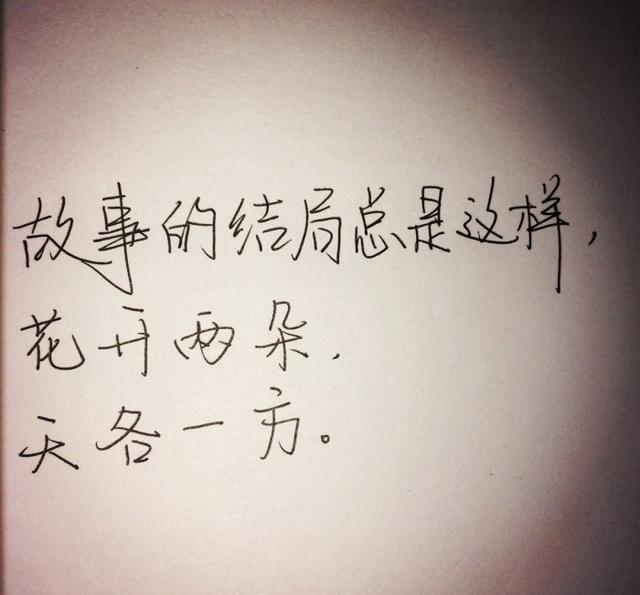 故事的结局总是这样,
花开两朵,
天各一方。